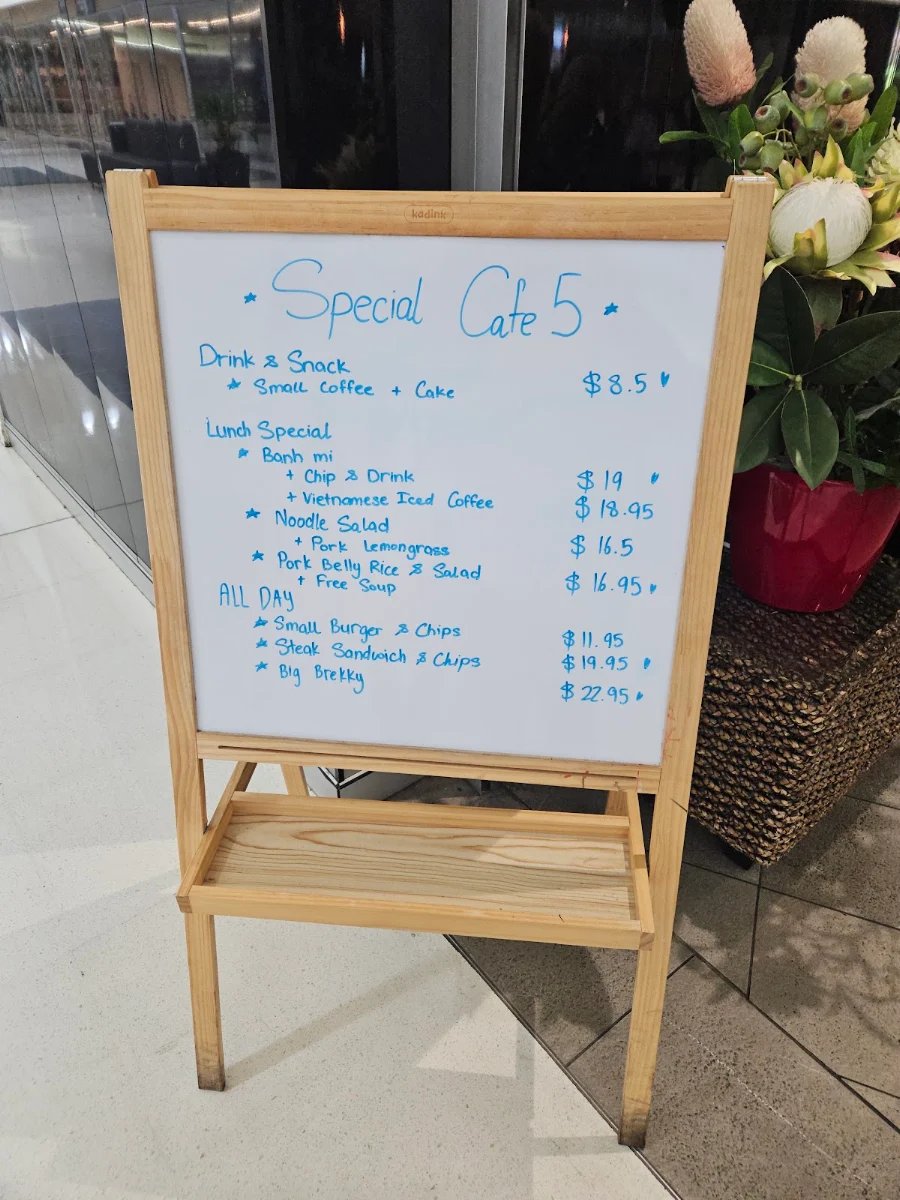 kadink
* Special Cafe 5 *
Drink & Snack
* Small Coffee + Cake $8.5
Lunch Special
* Banh mi
+ Chip & Drink $19
+ Vietnamese Iced Coffee $18.95
* Noodle Salad
+ Pork Lemongrass $16.5
* Pork Belly Rice & Salad
+ Free Soup $16.95
ALL DAY
* Small Burger & Chips $11.95
* Steak Sandwich & Chips $19.95
* Big Brekky $22.95